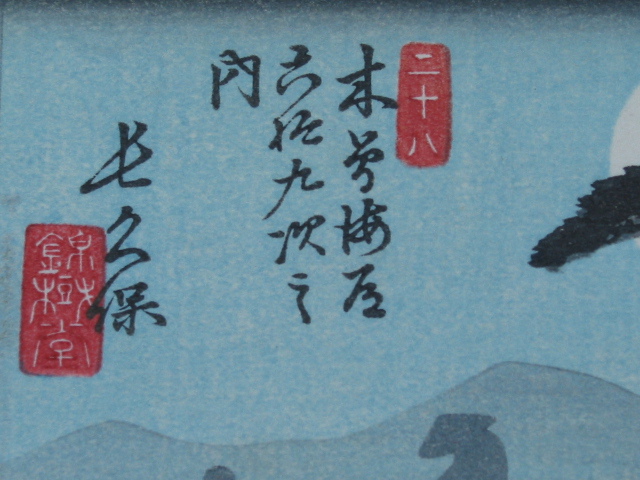 二十八
木曽海道
六拾九次之
内
長久保
錦樹堂